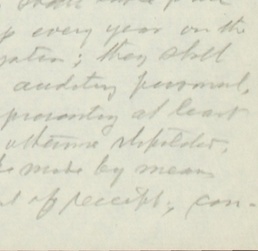 up every year on the
; they shall
auditing personal,
presenting at least
otherwise stipulated,
be made by means
of receipt, con-